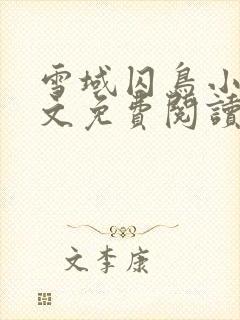 雪域囚鳥小
文免費閱讀
文李康